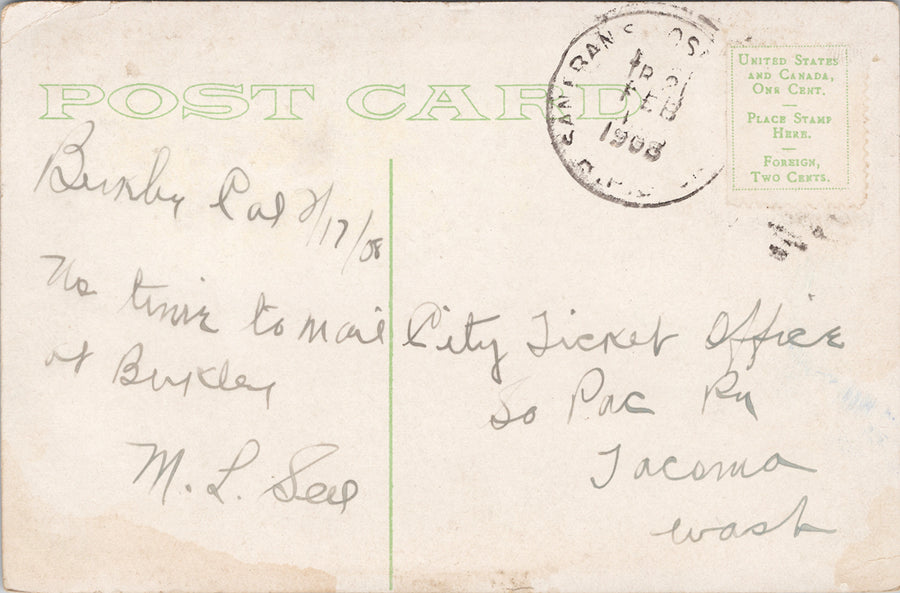 POST CARD
SAN FRAN. & LOS
TR 2
FEB
1908
R.P.O.
UNITED STATES
AND CANADA,
ONE CENT.
PLACE STAMP
HERE.
FOREIGN,
TWO CENTS.
Cal 2/17/08
No time to mail
at
M. L. See
City Ticket Office
So Pac Ry
Tacoma
Wash